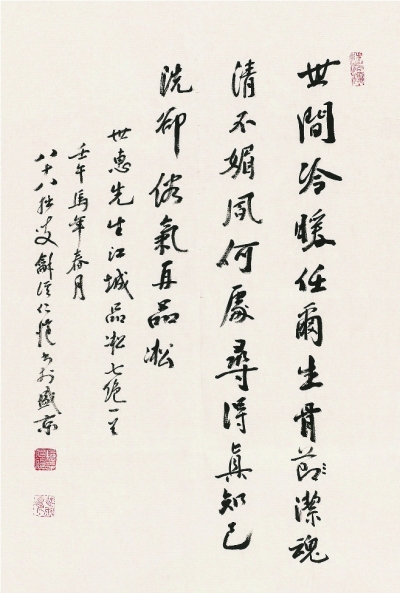 世間冷暖任爾生骨節潔魂
清不媚風何處尋得真知己
洗卻俗氣再品凇
世惠先生江城品凇七絕一首
壬午馬年春月
八十八拙叟龢溪仁愷書於盛京